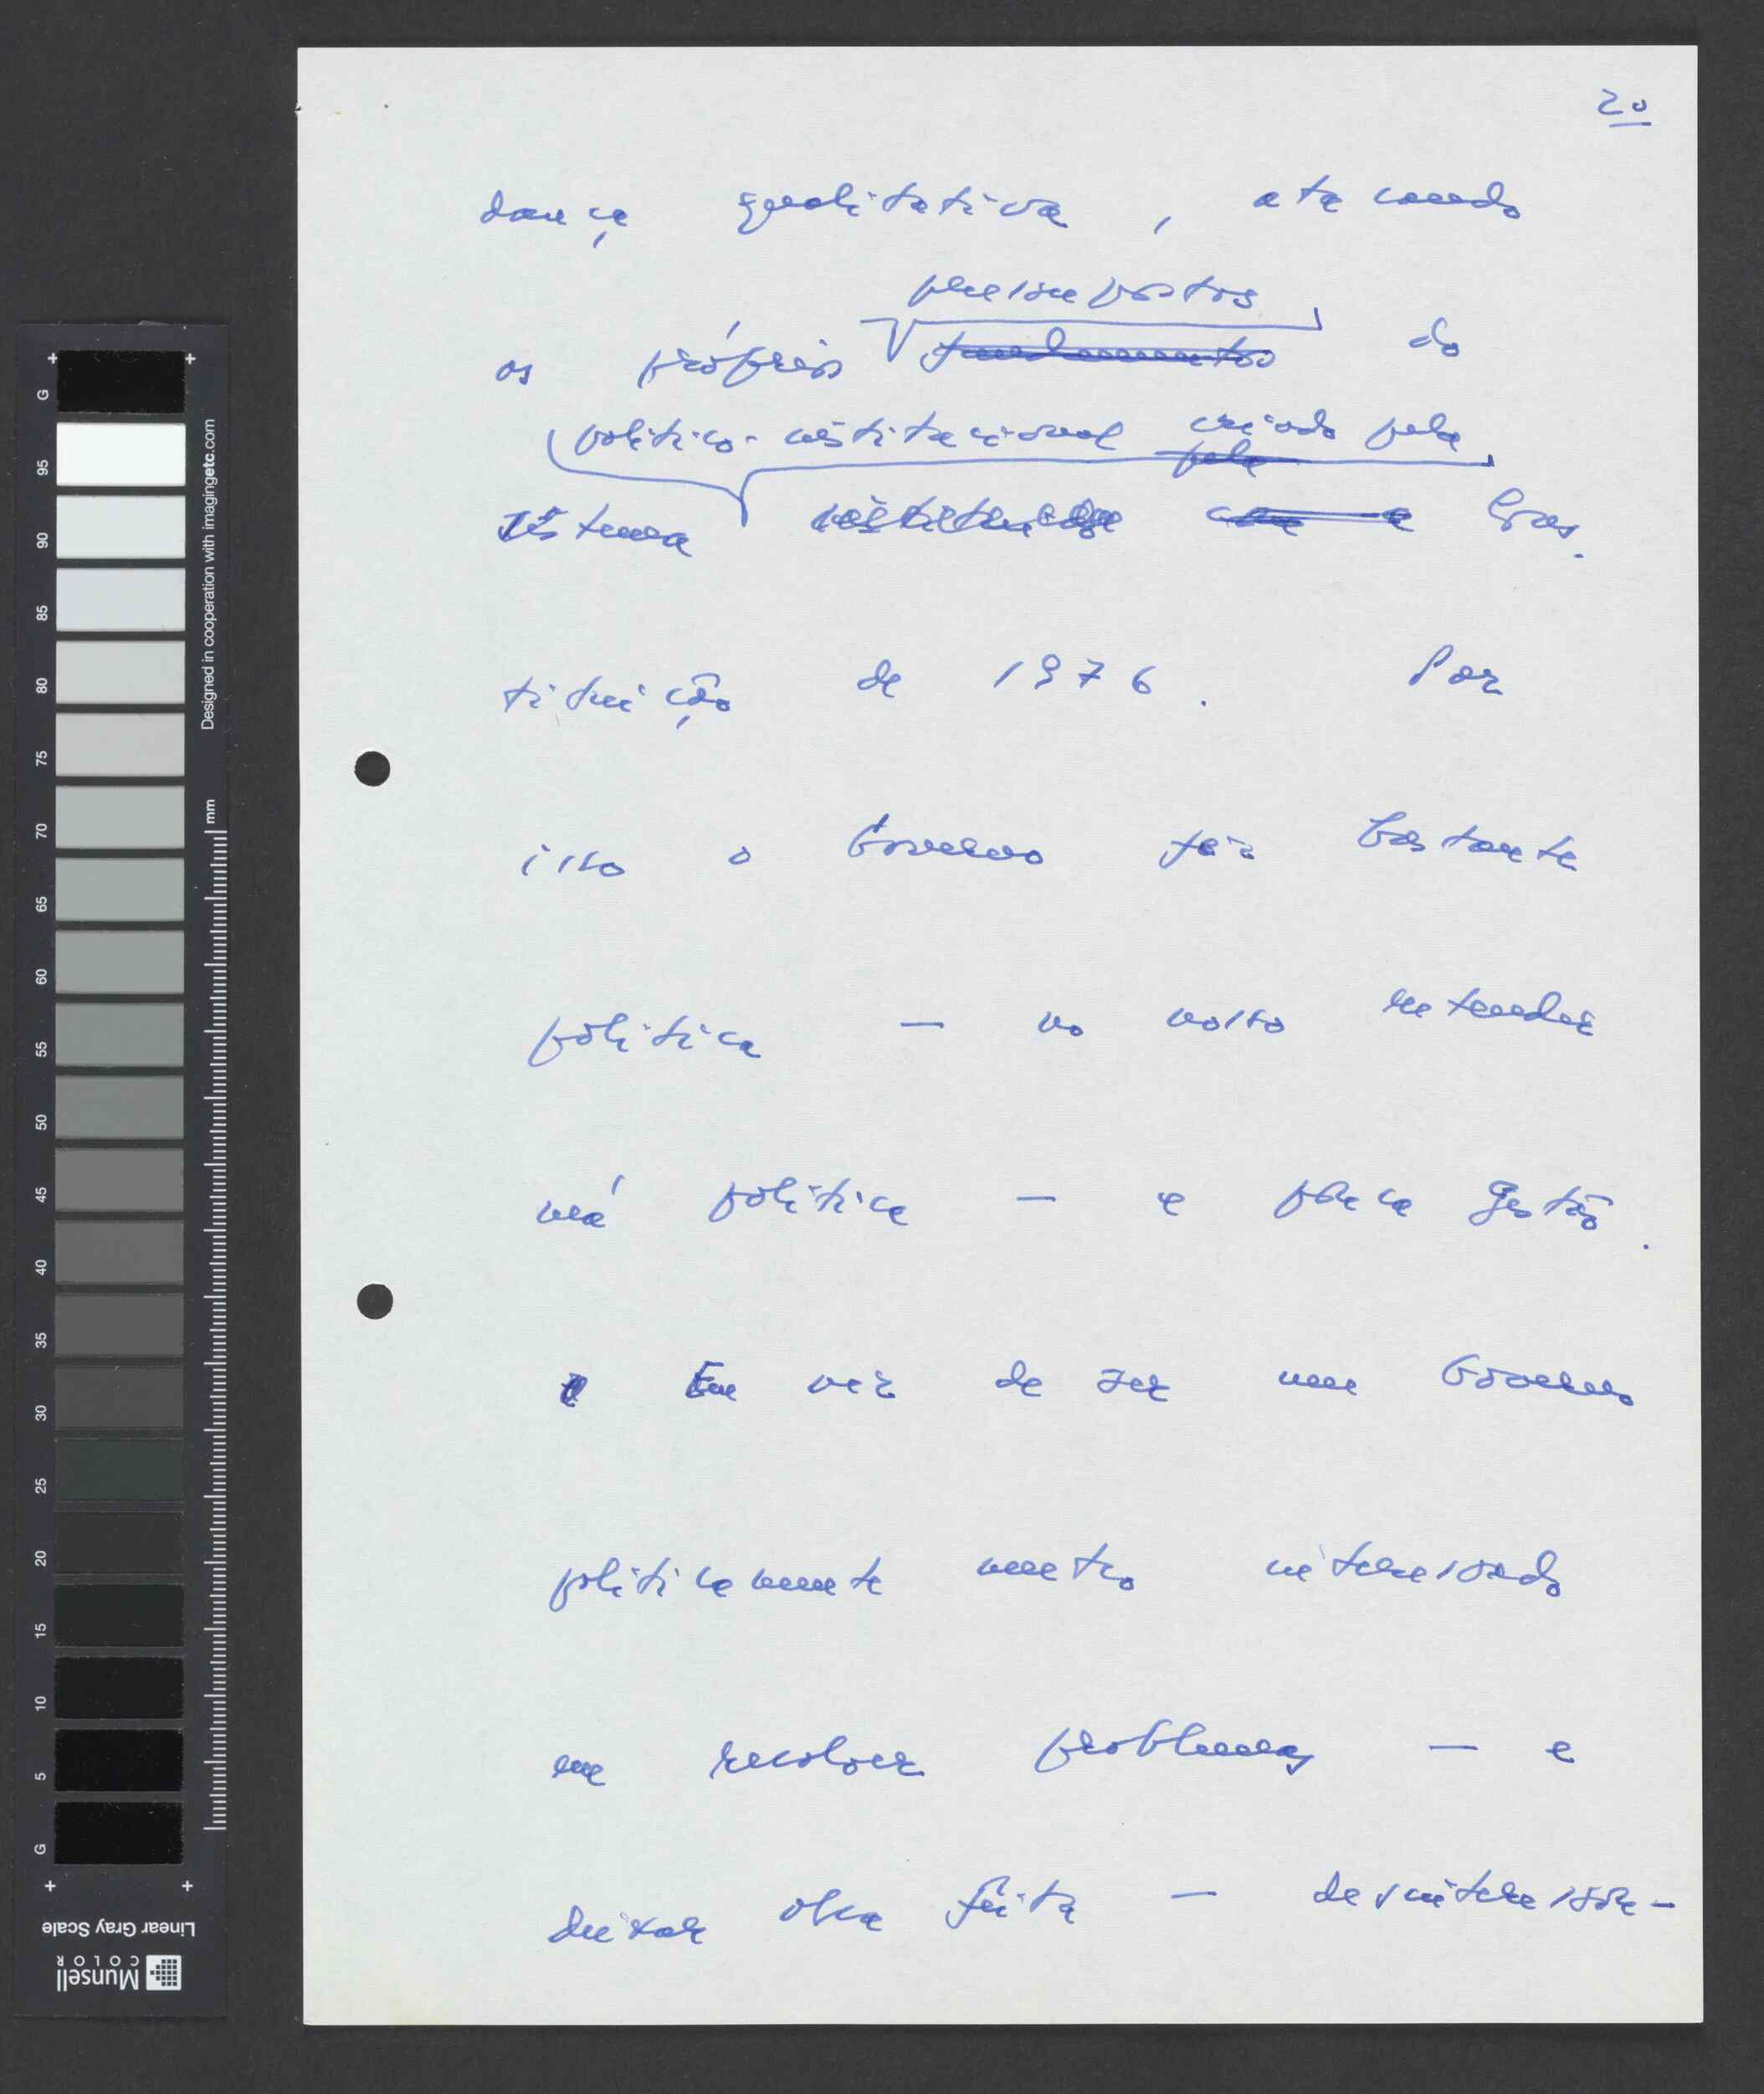 20
dança qualitativa, atacando
pressupostos
os próprios fundamentos do
politico-institucional criado pela
pela
sistema instituido com a Cons.
tituição de 1976. Por
isso o Governo faz bastante
politica — no nosso entender
má politica — e pouca gestão.
Em vez de ser um Governo
politicamente muito interessado
em resolver problemas — e
deixar obra feita — desinteressou-
G 95 90 85 80 75 70 65 60 55 50 45 40 35 30 25 20 15 10 5 G
Designed in cooperation with imagingetc.com
mm
Linear Gray Scale
Munsell
COLOR